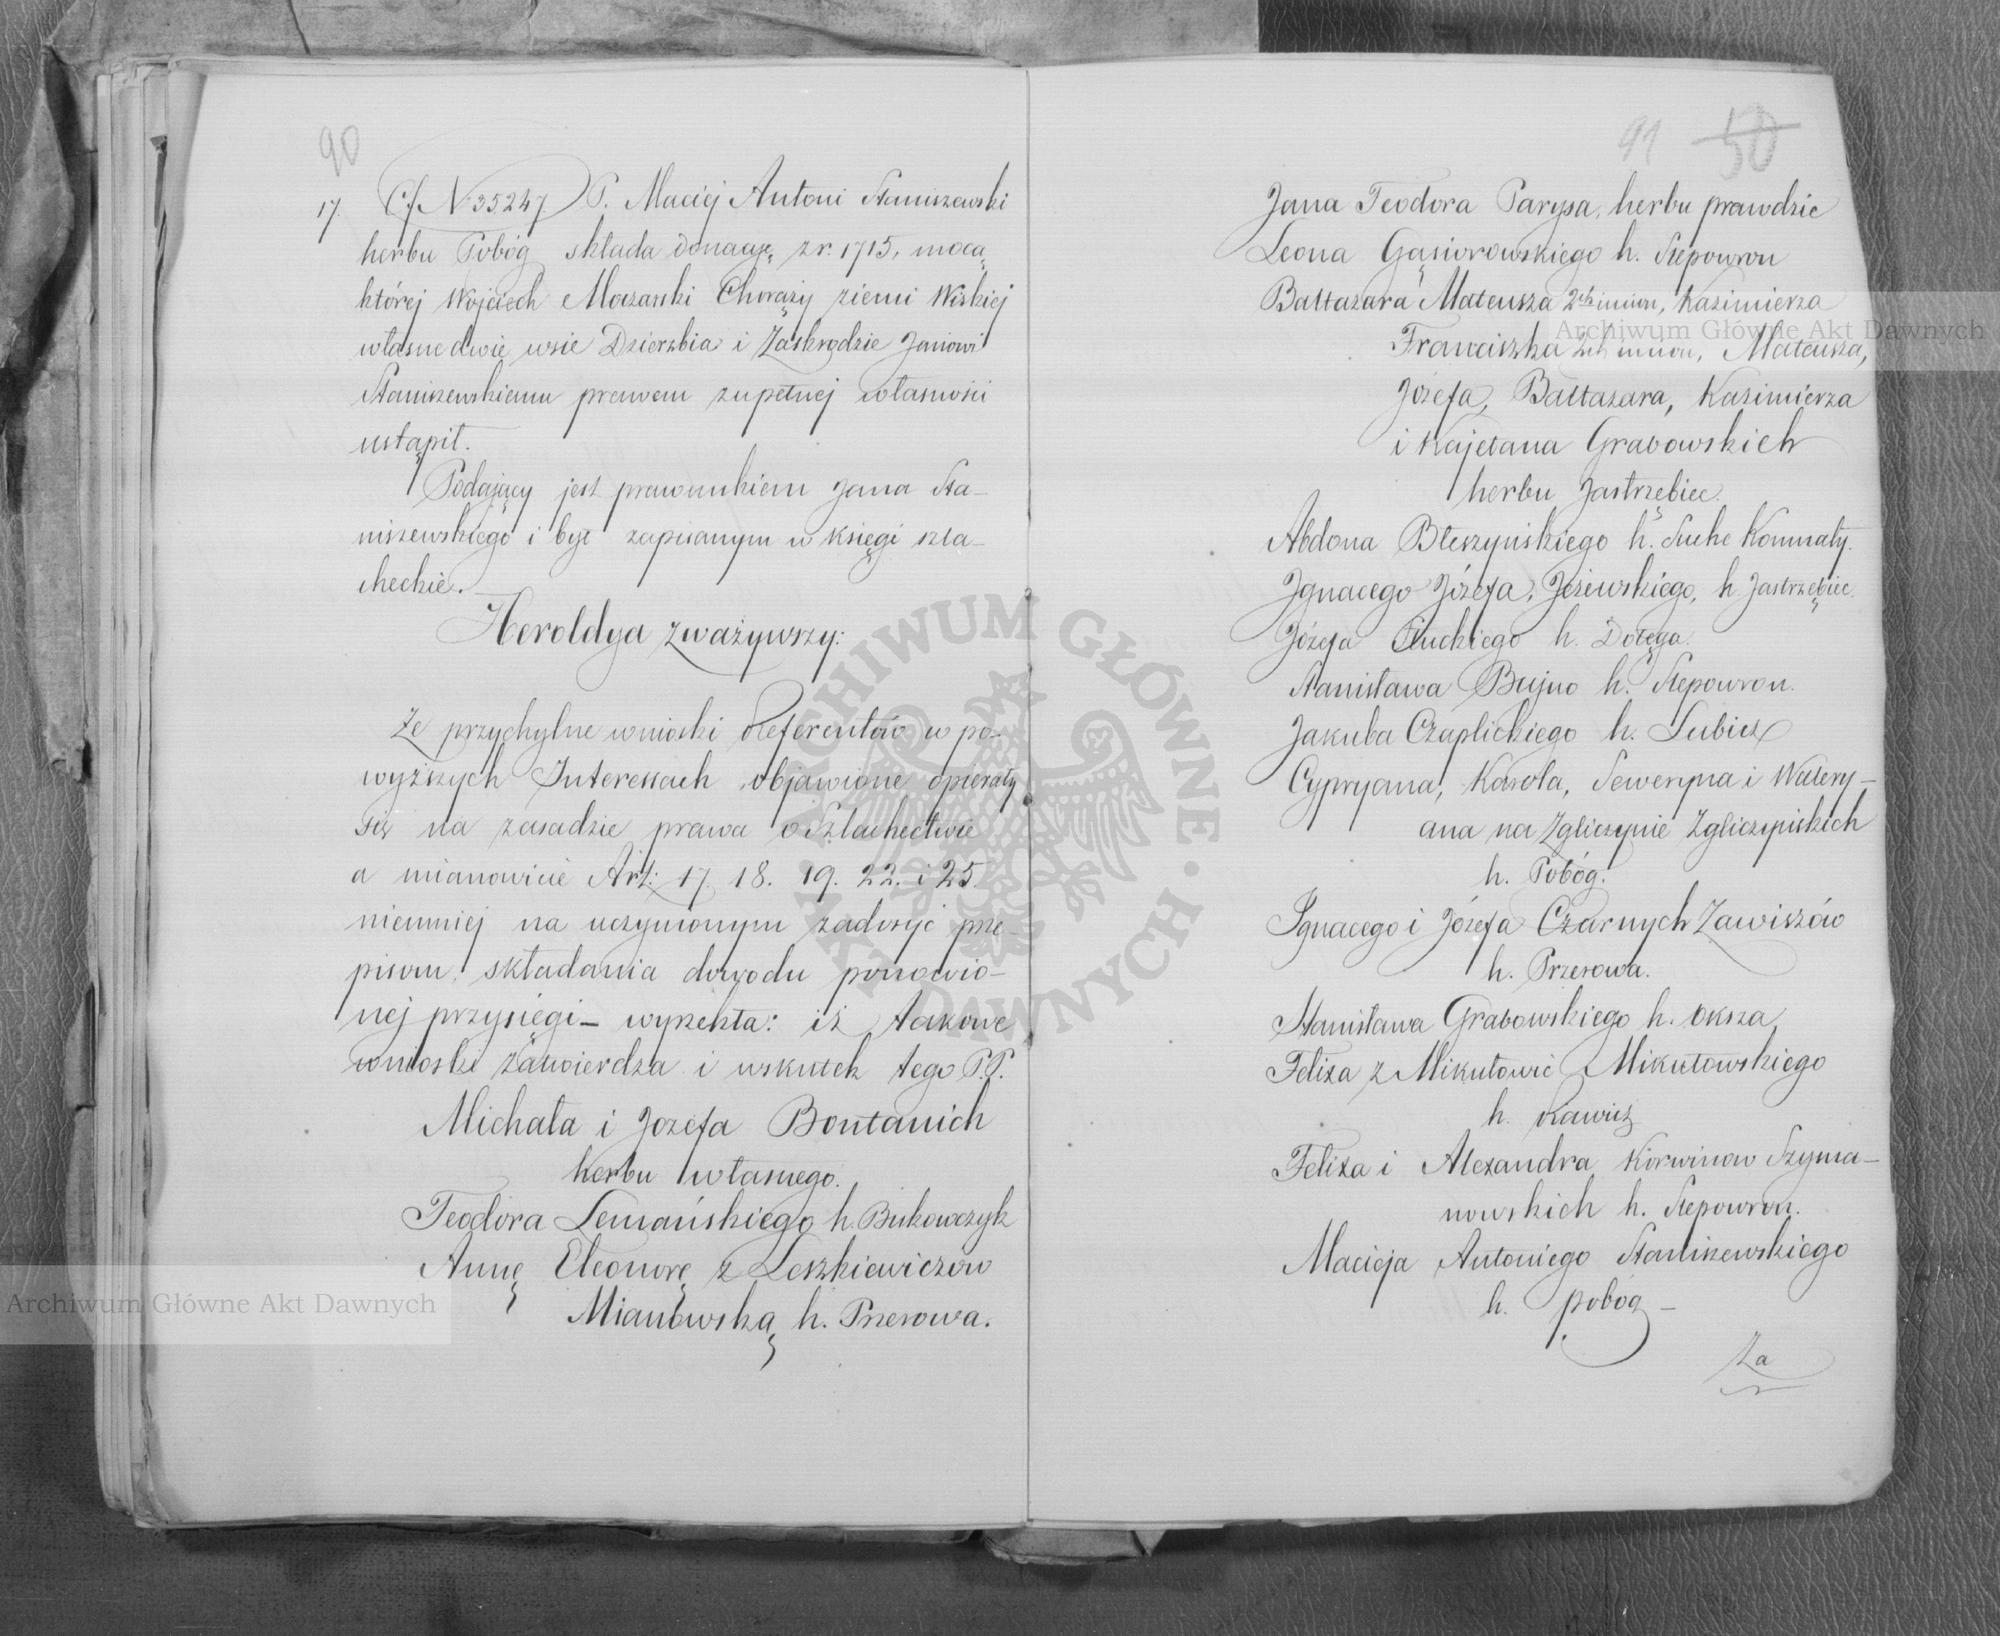 90
17. Cf N 35247 P. Maciej Antoni Staniszewski
herbu Pobóg składa donacyę z r. 1715, mocą
której Wojciech Moczarski Chorąży ziemi Wiskiej
własne dwie wsie Dzierzbia i Zaskrodzie Janowi
Staniszewskiemu prawem zupełnej własności
ustąpił.
Podający jest prawnukiem Jana Sta-
niszewskiego i był zapisanym w księgi szla-
checkie.
Heroldya zważywszy:
Że przychylne wnioski Referentów w po-
wyższych Interessach objawione opierały
się na zasadzie prawa o Szlachectwie
a mianowicie Art: 17. 18. 19. 22. i 25.
niemniej na uczynionym zadosyć prze-
pisom składania dowodu ponowio-
nej przysięgi – wyrzekła: iż takowe
wnioski zatwierdza i wskutek tego P.P.
Michała i Jozefa Bontanich
herbu własnego.
Teodora Lemańskiego h. Bukowczyk
Annę Eleonorę z Leszkiewiczow
Mianowską h. Przerowa.
91 50
Jana Teodora Parysa, herbu prawdzic
Leona Gąsiorowskiego h. Slepowron
Baltazara Mateusza 2ch imion, Kazimierza
Franciszka 2ch imion, Mateusza,
Józefa, Baltazara, Kazimierza
i Kajetana Grabowskich
herbu Jastrzębiec.
Abdona Bleszyńskiego h. Suche Komnaty.
Ignacego Józefa, Jeżewskiego, h. Jastrzębiec.
Józefa Łuckiego h. Dołęga.
Stanisława Bujno h. Slepowron.
Jakuba Czaplickiego h. Lubicz
Cypryana, Karola, Seweryna i Walery-
ana na Zgliczynie Zgliczyńskich
h. Pobóg.
Ignacego i Józefa Czarnych Zawiszów
h. Przerowa.
Stanisława Grabowskiego h. Oksza
Felixa z Mikułowic Mikułowskiego
h. Rawicz
Felixa i Alexandra Korwinow Szyma-
nowskich h. Slepowron.
Macieja Antoniego Staniszewskiego
h. pobóg –
Za
Archiwum Główne Akt Dawnych
Archiwum Główne Akt Dawnych
ARCHIWUM GŁÓWNE AKT DAWNYCH